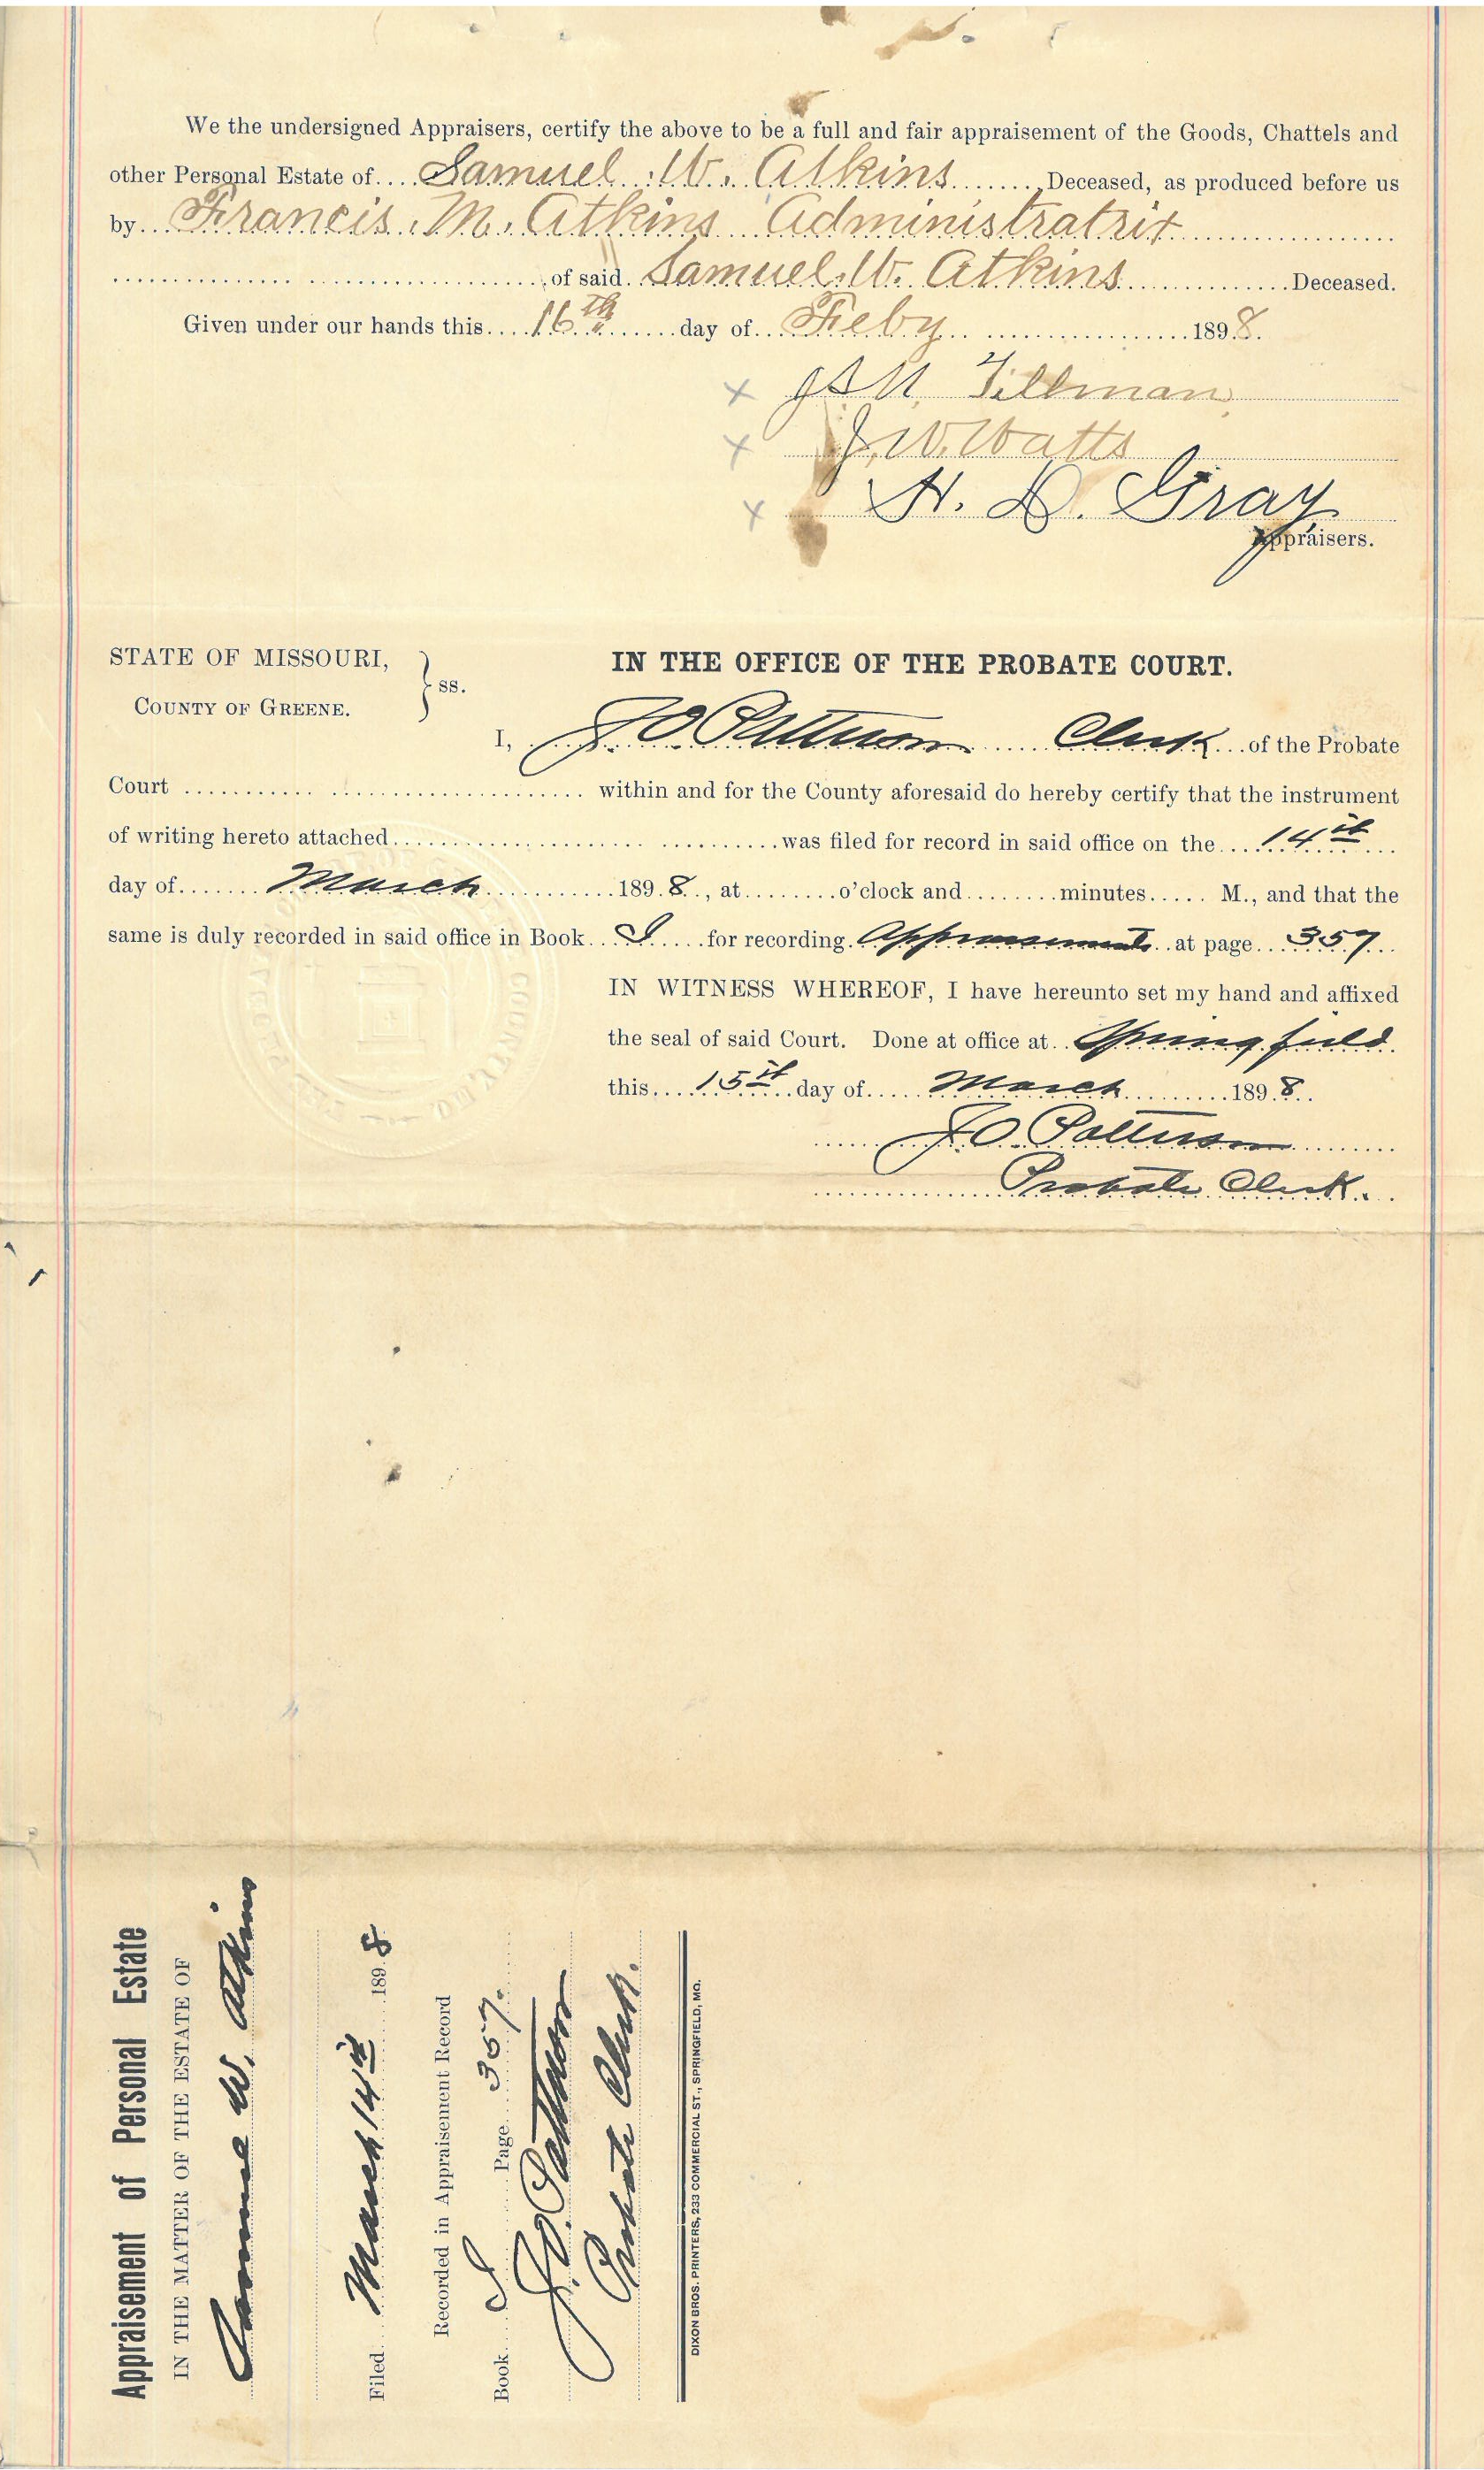 We the undersigned Appraisers, certify the above to be a full and fair appraisement of the Goods, Chattels and
other Personal Estate of.... Samuel W. Atkins ....... Deceased, as produced before us
by... Francis. M. Atkins Administratrix
of said Samuel. W. Atkins Deceased.
Given under our hands this.... 16th day of... Feby 1898.
x Tillman
x J. W. Watts
x H. D. Gray
Appraisers.
STATE OF MISSOURI,
COUNTY OF GREENE.
ss.
IN THE OFFICE OF THE PROBATE COURT.
I, J O Patterson Clerk of the Probate
Court within and for the County aforesaid do hereby certify that the instrument
of writing hereto attached was filed for record in said office on the 14th
day of March 1898, at o'clock and minutes M., and that the
same is duly recorded in said office in Book I for recording Appraisements at page 357
IN WITNESS WHEREOF, I have hereunto set my hand and affixed
the seal of said Court. Done at office at Springfield
this 15th day of March 1898
J O. Patterson
Probate Clerk.
Appraisement of Personal Estate
IN THE MATTER OF THE ESTATE OF
Samuel W. Atkins
Filed March 14th 1898
Recorded in Appraisement Record
Book I Page 357.
J O. Patterson
Probate Clerk.
DIXON BROS. PRINTERS, 233 COMMERCIAL ST., SPRINGFIELD, MO.